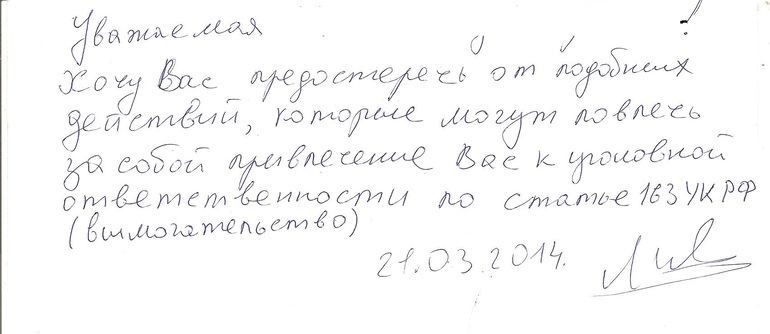 Уважаемая !
Хочу Вас предостеречь от подобных
действий, которые могут повлечь
за собой привлечение Вас к уголовной
ответственности по статье 163 УК РФ
(вымогательство)
21.03.2014.